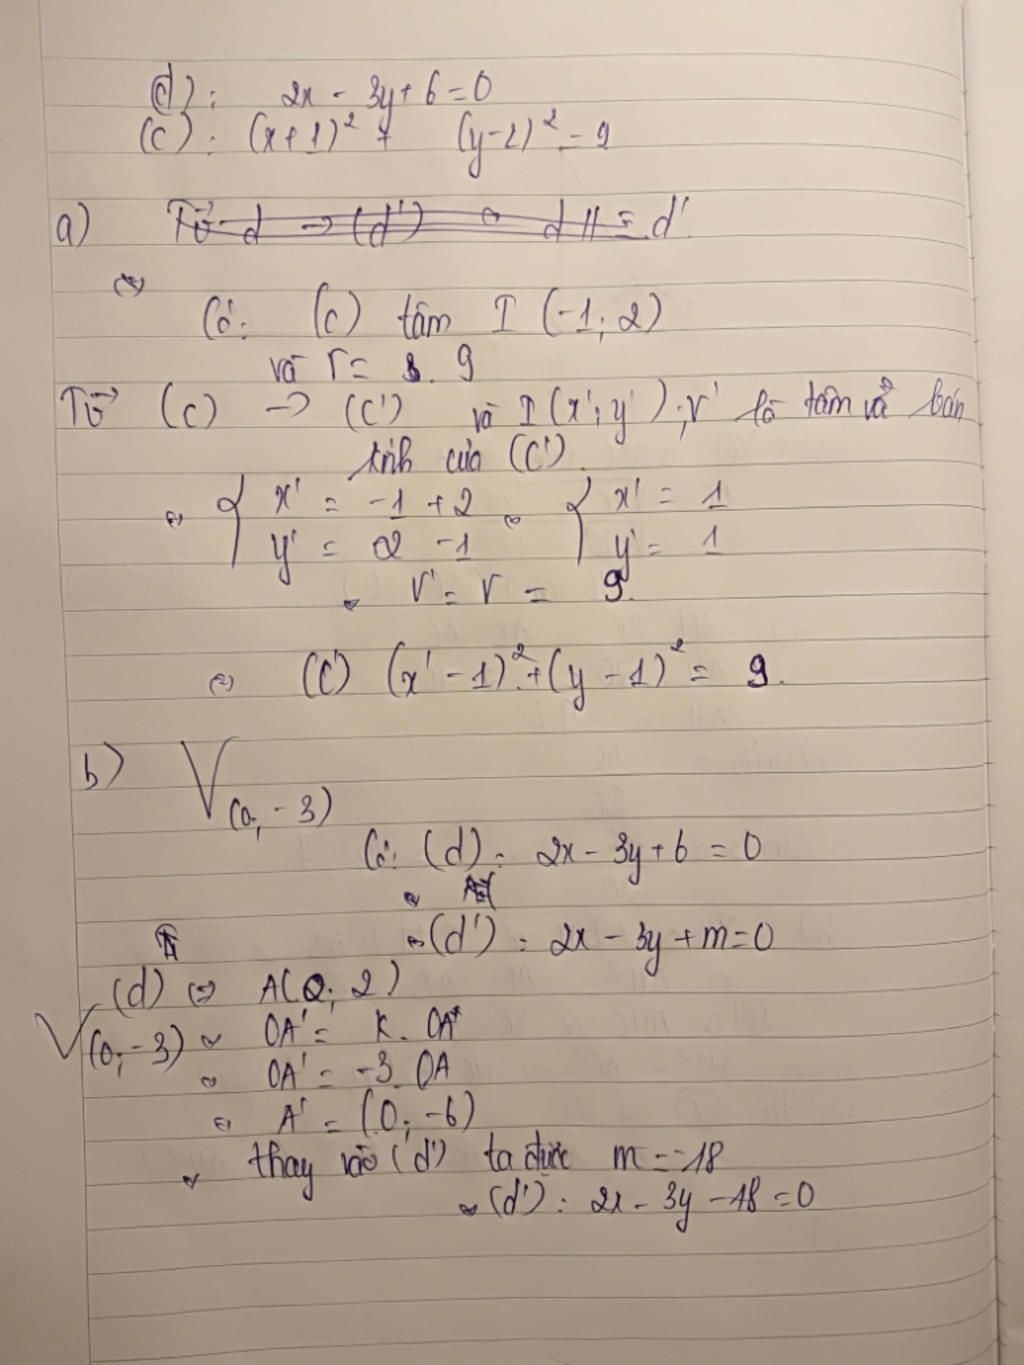 (d): 2x - 3y + 6 = 0
(C): (x+1)² + (y-2)² = 9
a) Từ d → (d') d // ≡ d'
Có: (C) tâm I (-1; 2)
và r = 9
Từ (C) → (C') và I(x'; y'); r' là tâm và bán
kính của (C').
⇔ { x' = -1 + 2 ⇔ { x' = 1
y' = 2 - 1 y' = 1
r' = r = 9.
⇔ (C') (x' - 1)² + (y - 1)² = 9.
b) V(O; -3)
Có: (d): 2x - 3y + 6 = 0
⇔ (d'): 2x - 3y + m = 0
(d) ⇔ A(0; 2)
V(O; -3) ⇔ OA' = k. OA
⇔ OA' = -3 OA
⇔ A' = (0; -6)
thay vào (d') ta được m = -18
(d'): 2x - 3y - 18 = 0